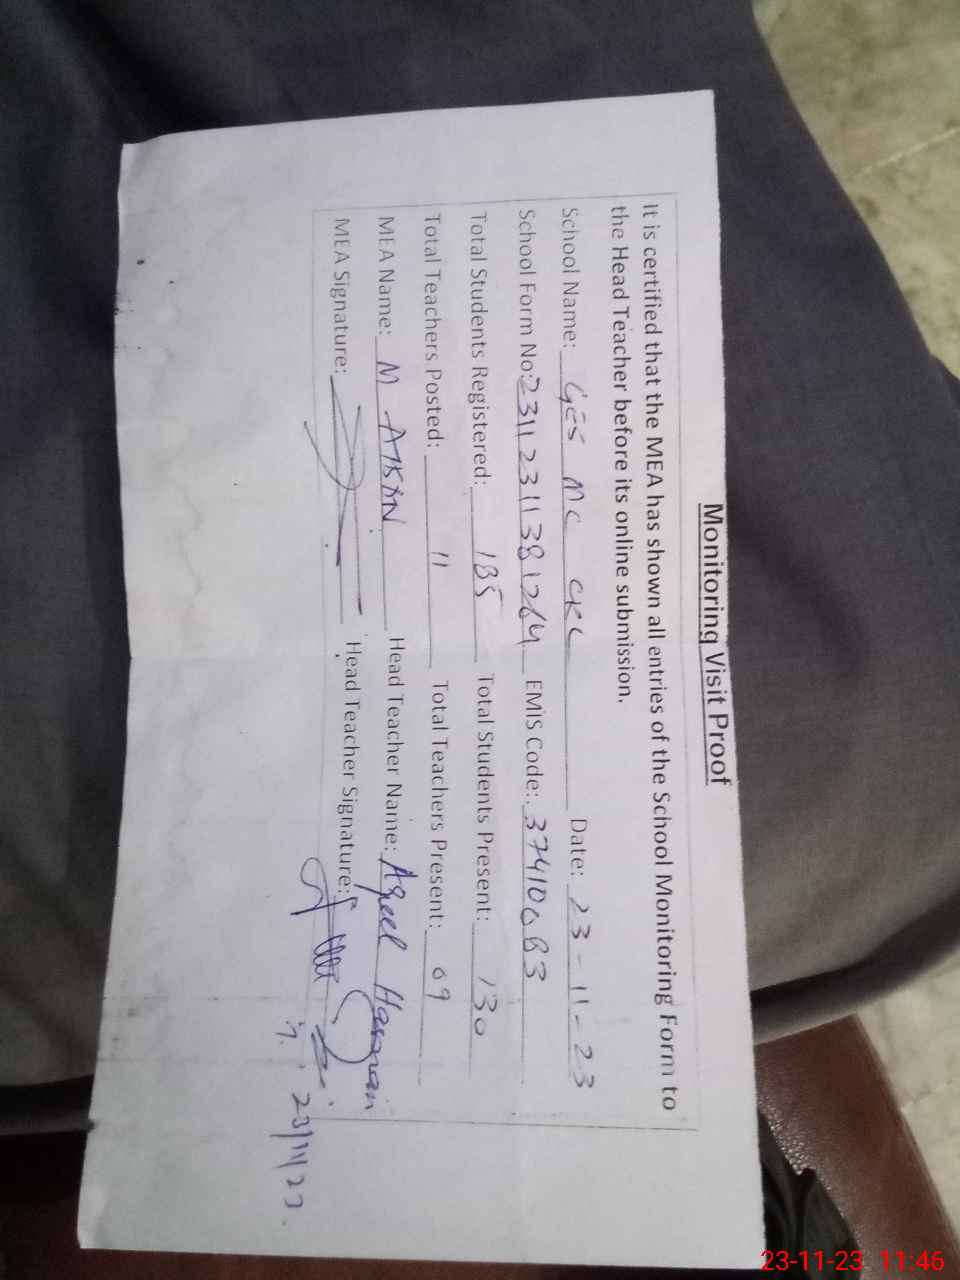 Monitoring Visit Proof
It is certified that the MEA has shown all entries of the School Monitoring Form to
the Head Teacher before its online submission.
School Name: GES MC CKL Date: 23-11-23
School Form No: 23112311381264 EMIS Code: 37410083
Total Students Registered: 185 Total Students Present: 130
Total Teachers Posted: 11 Total Teachers Present: 09
MEA Name: M Head Teacher Name: Aqeel Hasnain
MEA Signature: Head Teacher Signature:
23/11/23
23-11-23 11:46